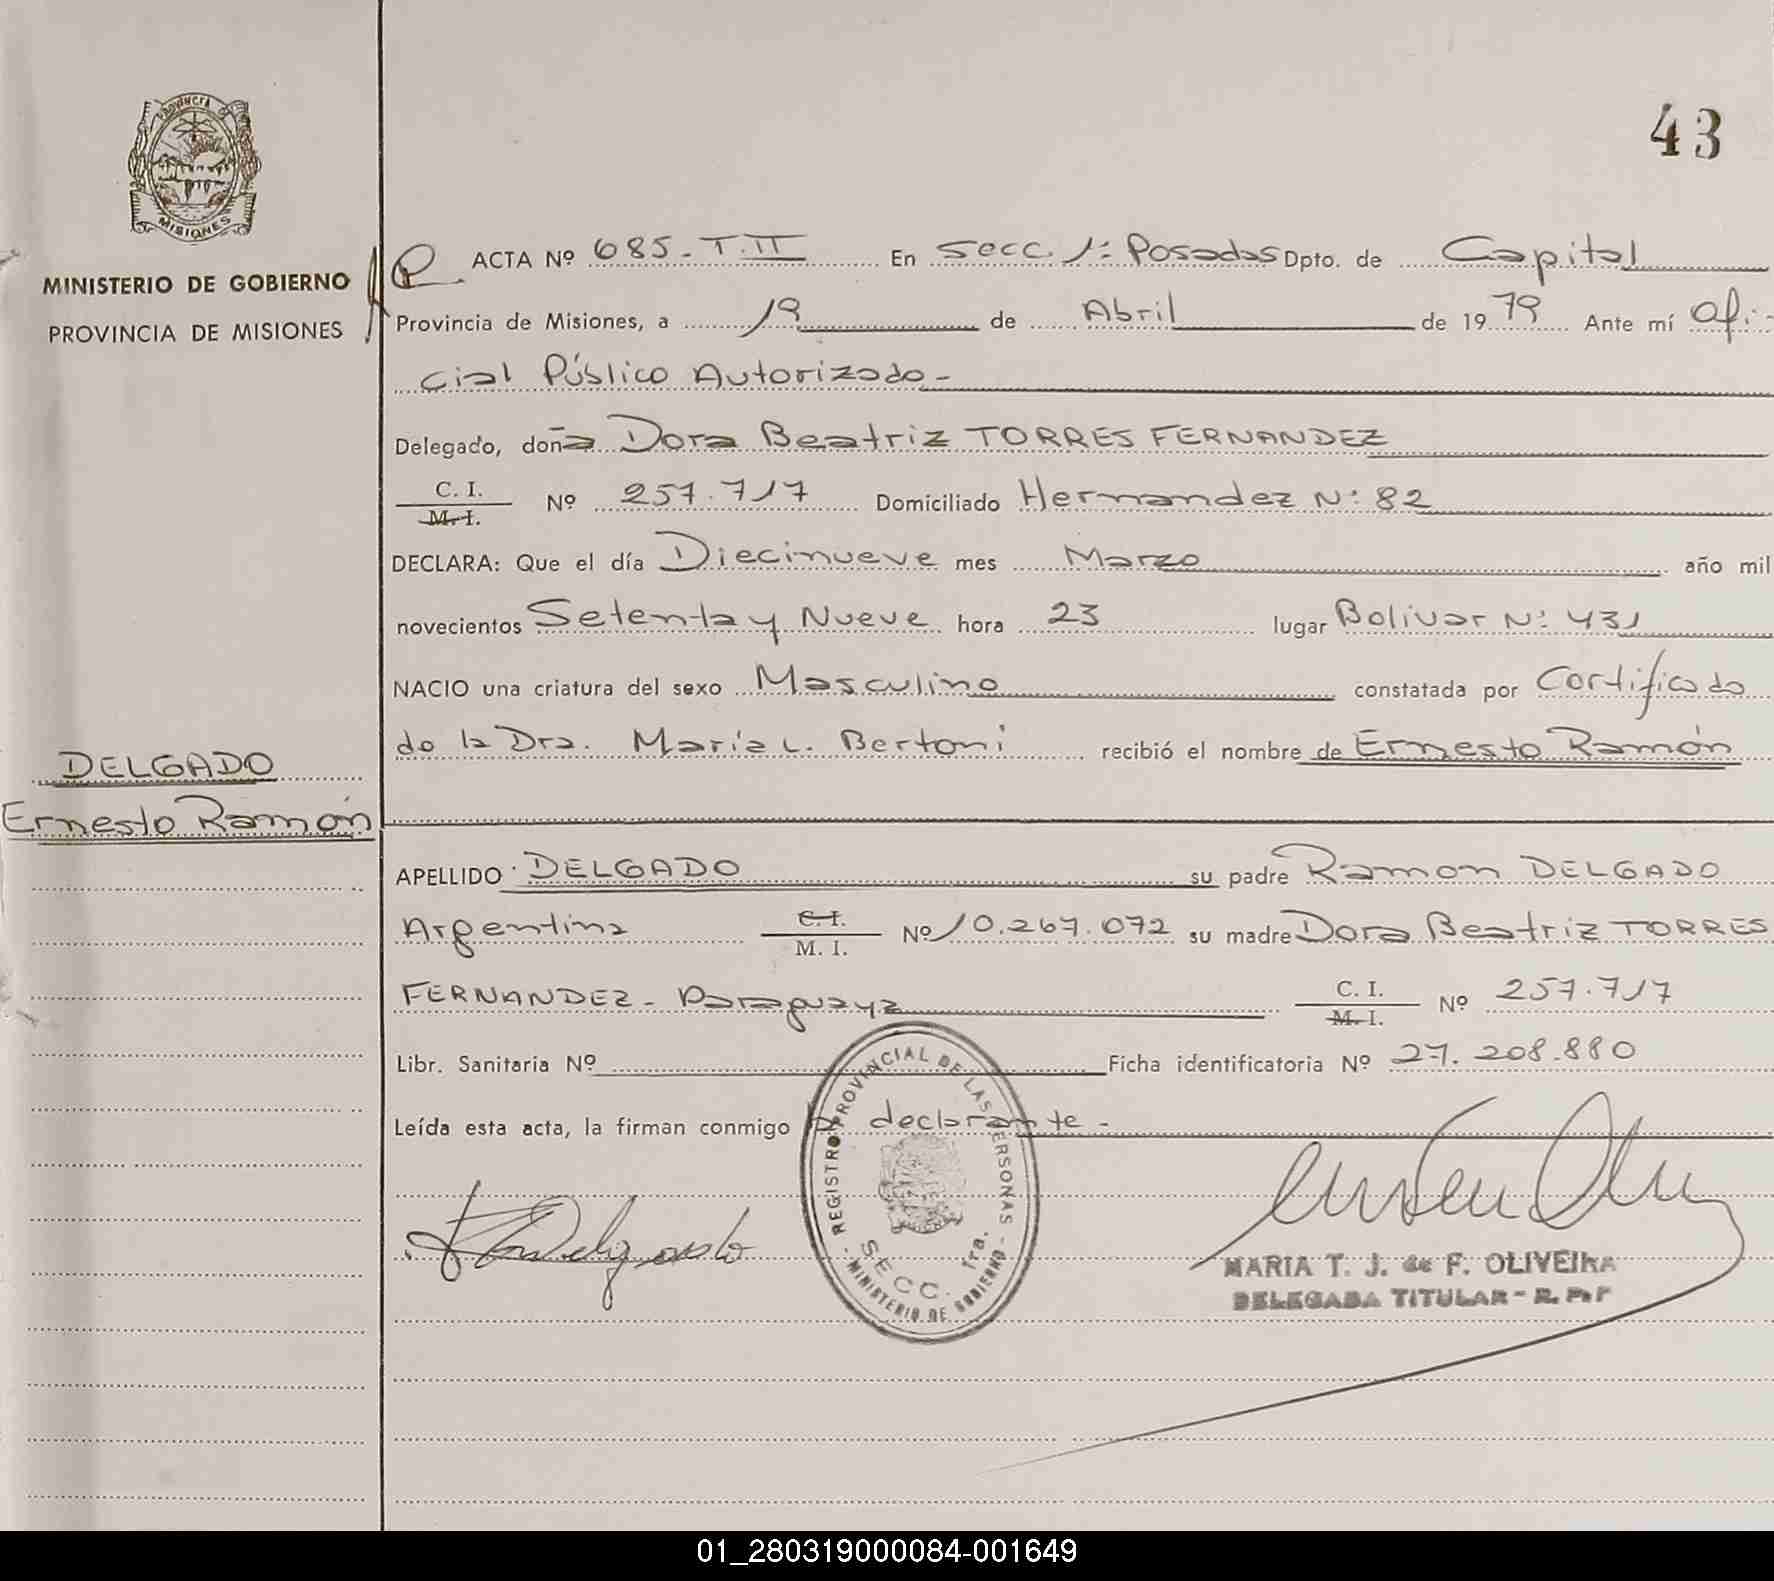 43
PROVINCIA DE
MISIONES
MINISTERIO DE GOBIERNO
PROVINCIA DE MISIONES
ACTA Nº 685-T.II En Secc. 1ª Posadas Dpto. de Capital
Provincia de Misiones, a 19 de Abril de 1979 Ante mí Ofi-
cial Público Autorizado-
Delegado, doña Dora Beatriz TORRES FERNANDEZ
C. I.
M. I. Nº 257.717 Domiciliado Hernandez Nº 82
DECLARA: Que el día Diecinueve mes Marzo año mil
novecientos Setenta y Nueve hora 23 lugar Bolivar Nº 431
NACIO una criatura del sexo Masculino constatada por Certificado
de la Dra. María L. Bertoni recibió el nombre de Ernesto Ramón
DELGADO
Ernesto Ramón
APELLIDO DELGADO su padre Ramon DELGADO
Argentina C. I.
M. I. Nº 10.267.072 su madre Dora Beatriz TORRES
FERNANDEZ - Paraguaya C. I.
M. I. Nº 257.717
Libr. Sanitaria Nº Ficha identificatoria Nº 27.208.880
Leída esta acta, la firman conmigo la declarante -
REGISTRO PROVINCIAL DE LAS PERSONAS
SECC. 1ra.
- MINISTERIO DE GOBIERNO -
MARIA T. J. de F. OLIVEIRA
DELEGADA TITULAR - R. P. P
01_280319000084-001649